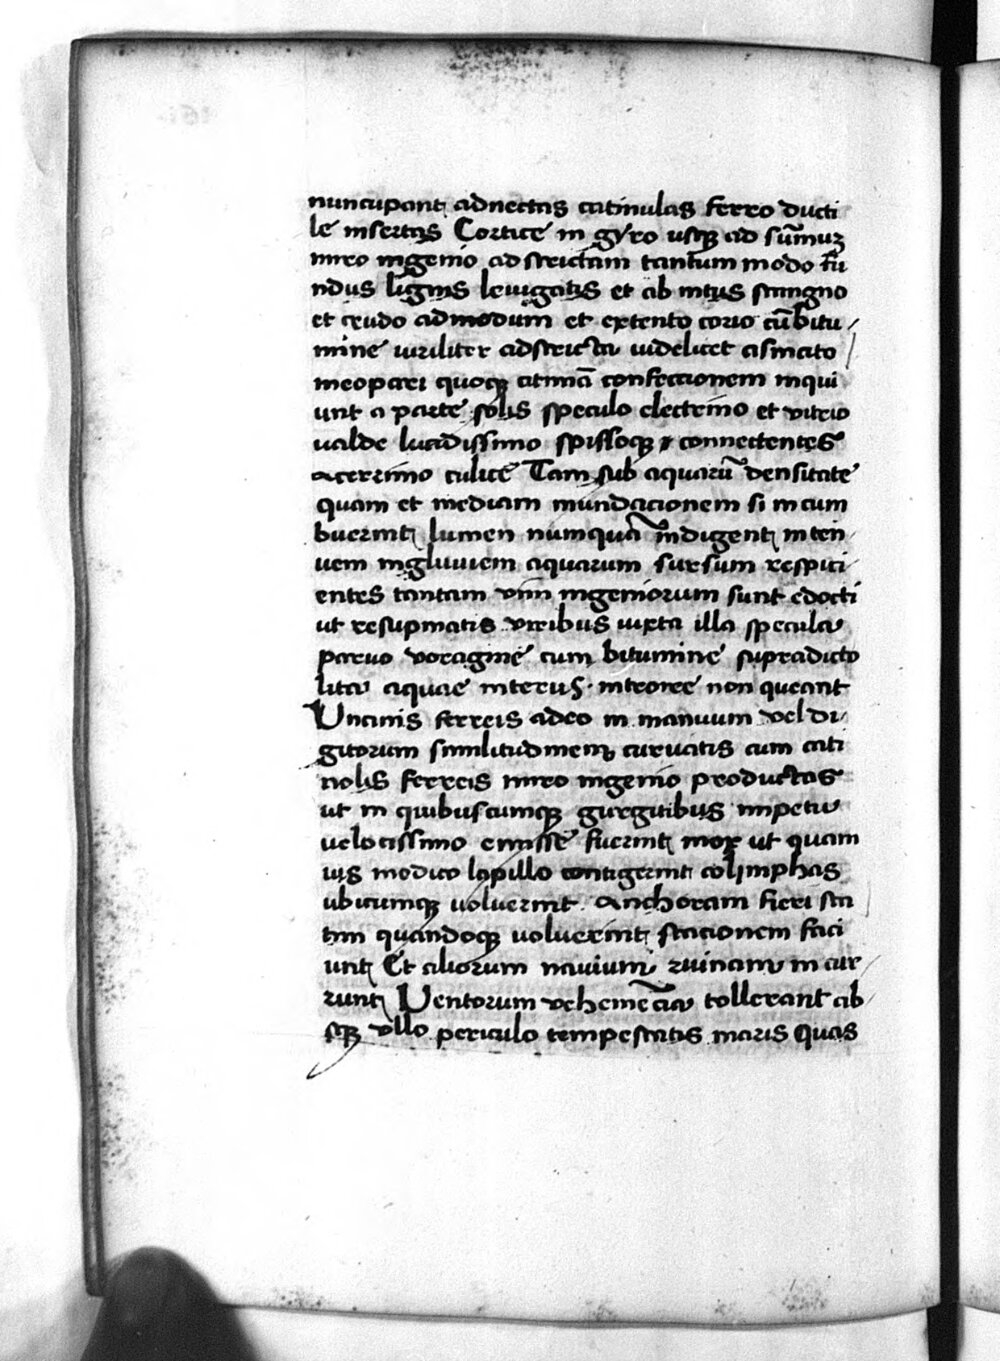 nuncupant adnectas catinulas ferro ducti
le insertas Cortice in gyro usq; ad sūmuz
miro ingenio adstrictam tantum modo fū
ndus lignis leuigatis et ab intus stangno
et ceudo admodum et extento corio cū bitu
mine uiriliter adstricta uidelicet asincito
meopari quoq; atiniā confectionem inqui
unt a parte solis speculo electrino et vitrio
ualde lucidissimo spissoq; & connectentes
acerrimo culice Tam sub aquarū densitate
quam et mediam mundacionem si incum
buerint lumen numquā indigent in ten
uem ingluuiem aquarum sursum respici
entes tantam vim ingeniorum sunt edocti
ut resupinatis viribus iuxta illa specula
paruo voragine cum bitumine supradicto
lita aquae interius introire non queant
Uncinis ferreis adeo in manuum vel di
gitorum similitudinem curuatis cum cati
nolis ferreis miro ingenio productas
ut in quibuscumq; gurgitibus impetu
uelocissimo emisse fuerint mox ut quam
uis modico lapillo contigerint colimphas
ubicumq; uoluerint Anchoram fieri sta
tim quandoq; uoluerint stacionem faci
unt Et aliorum nauium ruinam in cur
runt Uentorum vehemēcia tollerant ab
sq; vllo periculo tempestatis maris Quas